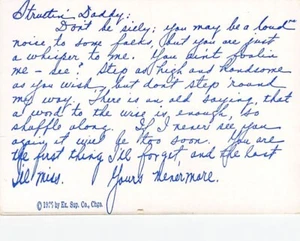 Struttin' Daddy:
Don't be sicly; you may be a loud
noise to some folks, but you are just
a whisper to me. You aint foolin
me - see! Step as high and handsome
as you wish, but don't step 'round
my way. There is an old saying, that
a word to the wise is enough, so
shuffle along. If I never see you
again it will be too soon. You are
the first thing I'll forget and the last
I'll miss. Yours Nevermore.
© 1925 by Ex. Sup. Co., Chgo.